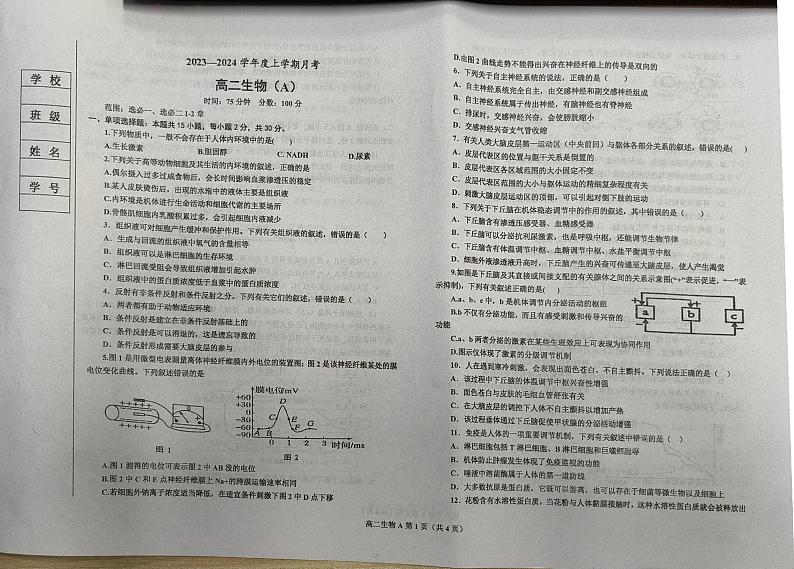 学 校
班 级
姓 名
学 号
2023—2024 学年度上学期月考
高二生物（A）
时间：75 分钟 分数：100 分
范围：选必一、选必二 1-2 章
一、单项选择题：本题共 15 小题，每小题 2 分，共 30 分。
1.下列物质中，一般不会存在于人体内环境中的是( )
A.生长激素 B.胆固醇 C. NADH D.尿素
2.下列关于高等动物细胞及其生活的内环境的叙述，正确的是
A.偶尔摄入过多过咸食物后，会长时间影响血浆渗透压的稳定
B.某人皮肤烫伤后，出现的水泡中的液体主要是组织液
C.内环境是机体进行生命活动和细胞代谢的主要场所
D.骨骼肌细胞内乳酸积累过多，会引起细胞内液减少
3．组织液可对细胞产生缓冲和保护作用。下列有关组织液的叙述，错误的是（ ）
A．生成与回流的组织液中氧气的含量相等
B．组织液可以是淋巴细胞的生存环境
C．淋巴回流受阻会导致组织液增加引起水肿
D．组织液中的蛋白质浓度低于血浆中的蛋白质浓度
4．反射有非条件反射和条件反射之分。下列有关它们的叙述，错误的是（ ）
A．两者都有助于动物适应环境
B．条件反射是建立在非条件反射基础上的
C．条件反射是可以消退的，这是遗忘导致的
D．条件反射形成需要大脑皮层的参与
5.图 1 是用微型电表测量离体神经纤维膜内外电位的装置图；图 2 是该神经纤维某处的膜
电位变化曲线。下列叙述错误的是
膜电位/mV
+60
+30
0
−30
−60
−90
A B C D E F G
0 1 2 3 时间/ms
图 1
图 2
A.图 1 测得的电位可表示图 2 中 AB 段的电位
B.图 2 中 C 和 E 点神经纤维膜上 Na+的跨膜运输速率相同
C.若细胞外钠离子浓度适当降低，在适宜条件刺激下图 2 中 D 点下移
D.由图 2 曲线走势不能得出兴奋在神经纤维上的传导是双向的
6．下列关于自主神经系统的说法，正确的是（ ）
A．自主神经系统完全自主，由交感神经和副交感神经组成
B．自主神经系统属于传出神经，有脑神经也有脊神经
C．排尿时，交感神经兴奋，会使膀胱缩小
D．交感神经兴奋支气管收缩
7．有关人类大脑皮层第一运动区（中央前回）与躯体各部分关系的叙述，错误的是（ ）
A．皮层代表区的位置与躯干关系是倒置的
B．皮层代表区各区域范围的大小固定不变
C．皮层代表区范围的大小与躯体运动的精细复杂程度有关
D．刺激大脑皮层运动区的顶部，可以引起对侧下肢的运动
8．下列关于下丘脑在机体稳态调节中的作用的叙述，其中错误的是（ ）
A．下丘脑含有渗透压感受器、血糖感受器
B．下丘脑可以分泌抗利尿激素，也是呼吸中枢，还能调节生物节律
C．下丘脑含有体温调节中枢、血糖调节中枢、水盐平衡调节中枢
D．细胞外液渗透压升高时，下丘脑产生的兴奋可传递至大脑皮层，使人产生渴觉
9.如图是下丘脑及其直接或间接支配的有关腺体之间的关系示意图(“+”表示促进，“一”表
示抑制)，下列有关叙述正确的是( )
A.a、b、c 中，b 是机体调节内分泌活动的枢纽
B.b 不仅有分泌功能，而且有感受刺激和传导兴奋的
功能
C.a、b 两者分泌的激素在某些生理效应上可表现为协同作用
D.图示仅体现了激素的分级调节机制
a b c
+ −
10．人在遇到寒冷刺激，会表现出面色苍白、不自主颤抖。下列说法正确的是（ ）
A．该过程中下丘脑的体温调节中枢兴奋性增强
B．面色苍白与皮肤的毛细血管舒张有关
C．在大脑皮层的调控下人体不自主颤抖以增加产热
D．该过程垂体通过下丘脑促使甲状腺的分泌活动增强
11．免疫是人体的一项重要调节机制，下列有关叙述中错误的是（ ）
A．淋巴细胞包括 T 淋巴细胞、B 淋巴细胞和巨噬细胞等
B．机体防止肿瘤发生体现了免疫监视的功能
C．唾液中溶菌酶属于人体的第一道防线
D．大多数抗原是蛋白质，它既可以游离，也可以存在于细菌等微生物以及细胞上
12．花粉含有水溶性蛋白质，当花粉与人体黏膜接触时，这种水溶性蛋白质就会被释放出
高二生物 A 第 1 页（共 4 页）